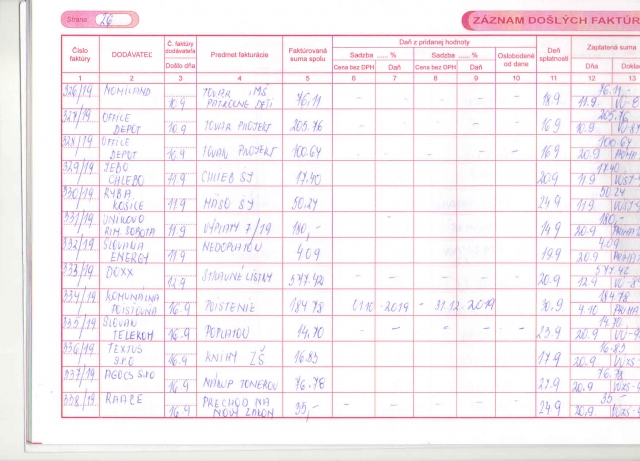 Strana: 26
ZÁZNAM DOŠLÝCH FAKTÚR
Číslo faktúry
DODÁVATEĽ
Č. faktúry dodávateľa
Došlo dňa
Predmet fakturácie
Fakturovaná suma spolu
Daň z pridanej hodnoty
Sadzba ...... %
Sadzba ...... %
Cena bez DPH
Daň
Cena bez DPH
Daň
Oslobodené od dane
Deň splatnosti
Zaplatená suma
Dňa
1 2 3 4 5 6 7 8 9 10 11 12 13
326/19 NOMILAND 10.9 TOVAR MŠ 76.11 - - - - - 18.9 76.11
11.9.
327/19 OFFICE DEPOT 10.9 TOVAR PROJEKT 205.76 - - - - - 16.9 205.76
10.9
328/19 OFFICE DEPOT 10.9 TOVAR PROJEKT 100.64 - - - - - 16.9 100.64
20.9
329/19 CHLEBO 11.9 CHLIEB SJ 17.40 - - - - - 20.9 17.40
20.9
330/19 RYBA KOŠICE 11.9 MÄSO SJ 50.24 - - - - - 24.9 50.24
11.9
331/19 RIM. SOBOTA 11.9 VÝPLATY 7/19 180,- - - - - - 14.9 180,-
20.9
332/19 SLOVAKIA ENERGY 11.9 NEDOPLATOK 409 - - - - - 19.9 409
20.9
333/19 DOXX 12.9 STRAVNÉ LÍSTKY 577.42 - - - - - 20.9 577.42
12.9
334/19 KOMUNÁLNA POISŤOVŇA 16.9 POISTENIE 184.78 01.10 - 2019 - 31.12.2019 30.9 184.78
4.10
335/19 SLOVAK TELEKOM 16.9 POPLATOK 14,70 - - - - - 23.9 14.70
20.9
336/19 TEXTUS S.R.O 16.9 KNIHY ZŠ 16.83 - - - - - 17.9 16.83
20.9
337/19 S.R.O 16.9 NÁKUP TONEROV 76.78 - - - - - 27.9 76.78
20.9
338/19 16.9 PRECHOD NA NOVÝ ZÁKON 35,- - - - - - 24.9 35 -
20.9.